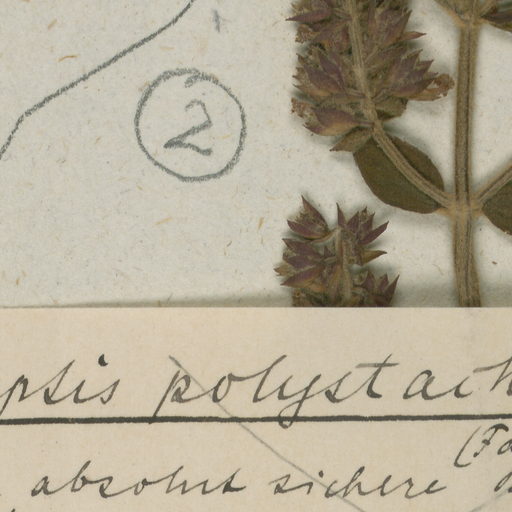 2
psis polystach
(Fa
absolut sichere